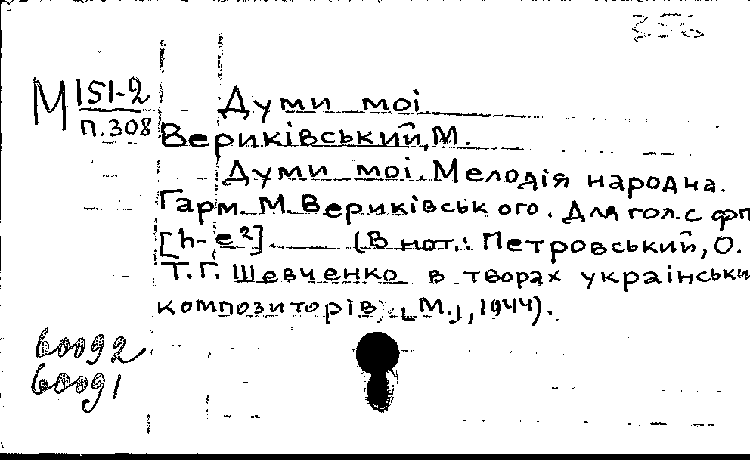 356
М 151-2
п.308
Думи мої
Вериківський, М.
Думи мої. Мелодія народна.
Гарм. М. Вериківськ ого. Для гол. с фп
[h-e²]. (В нот.: Петровський, О.
Т.Г. Шевченко в творах українськи
композиторів, [М.], 1944).
60092
60091